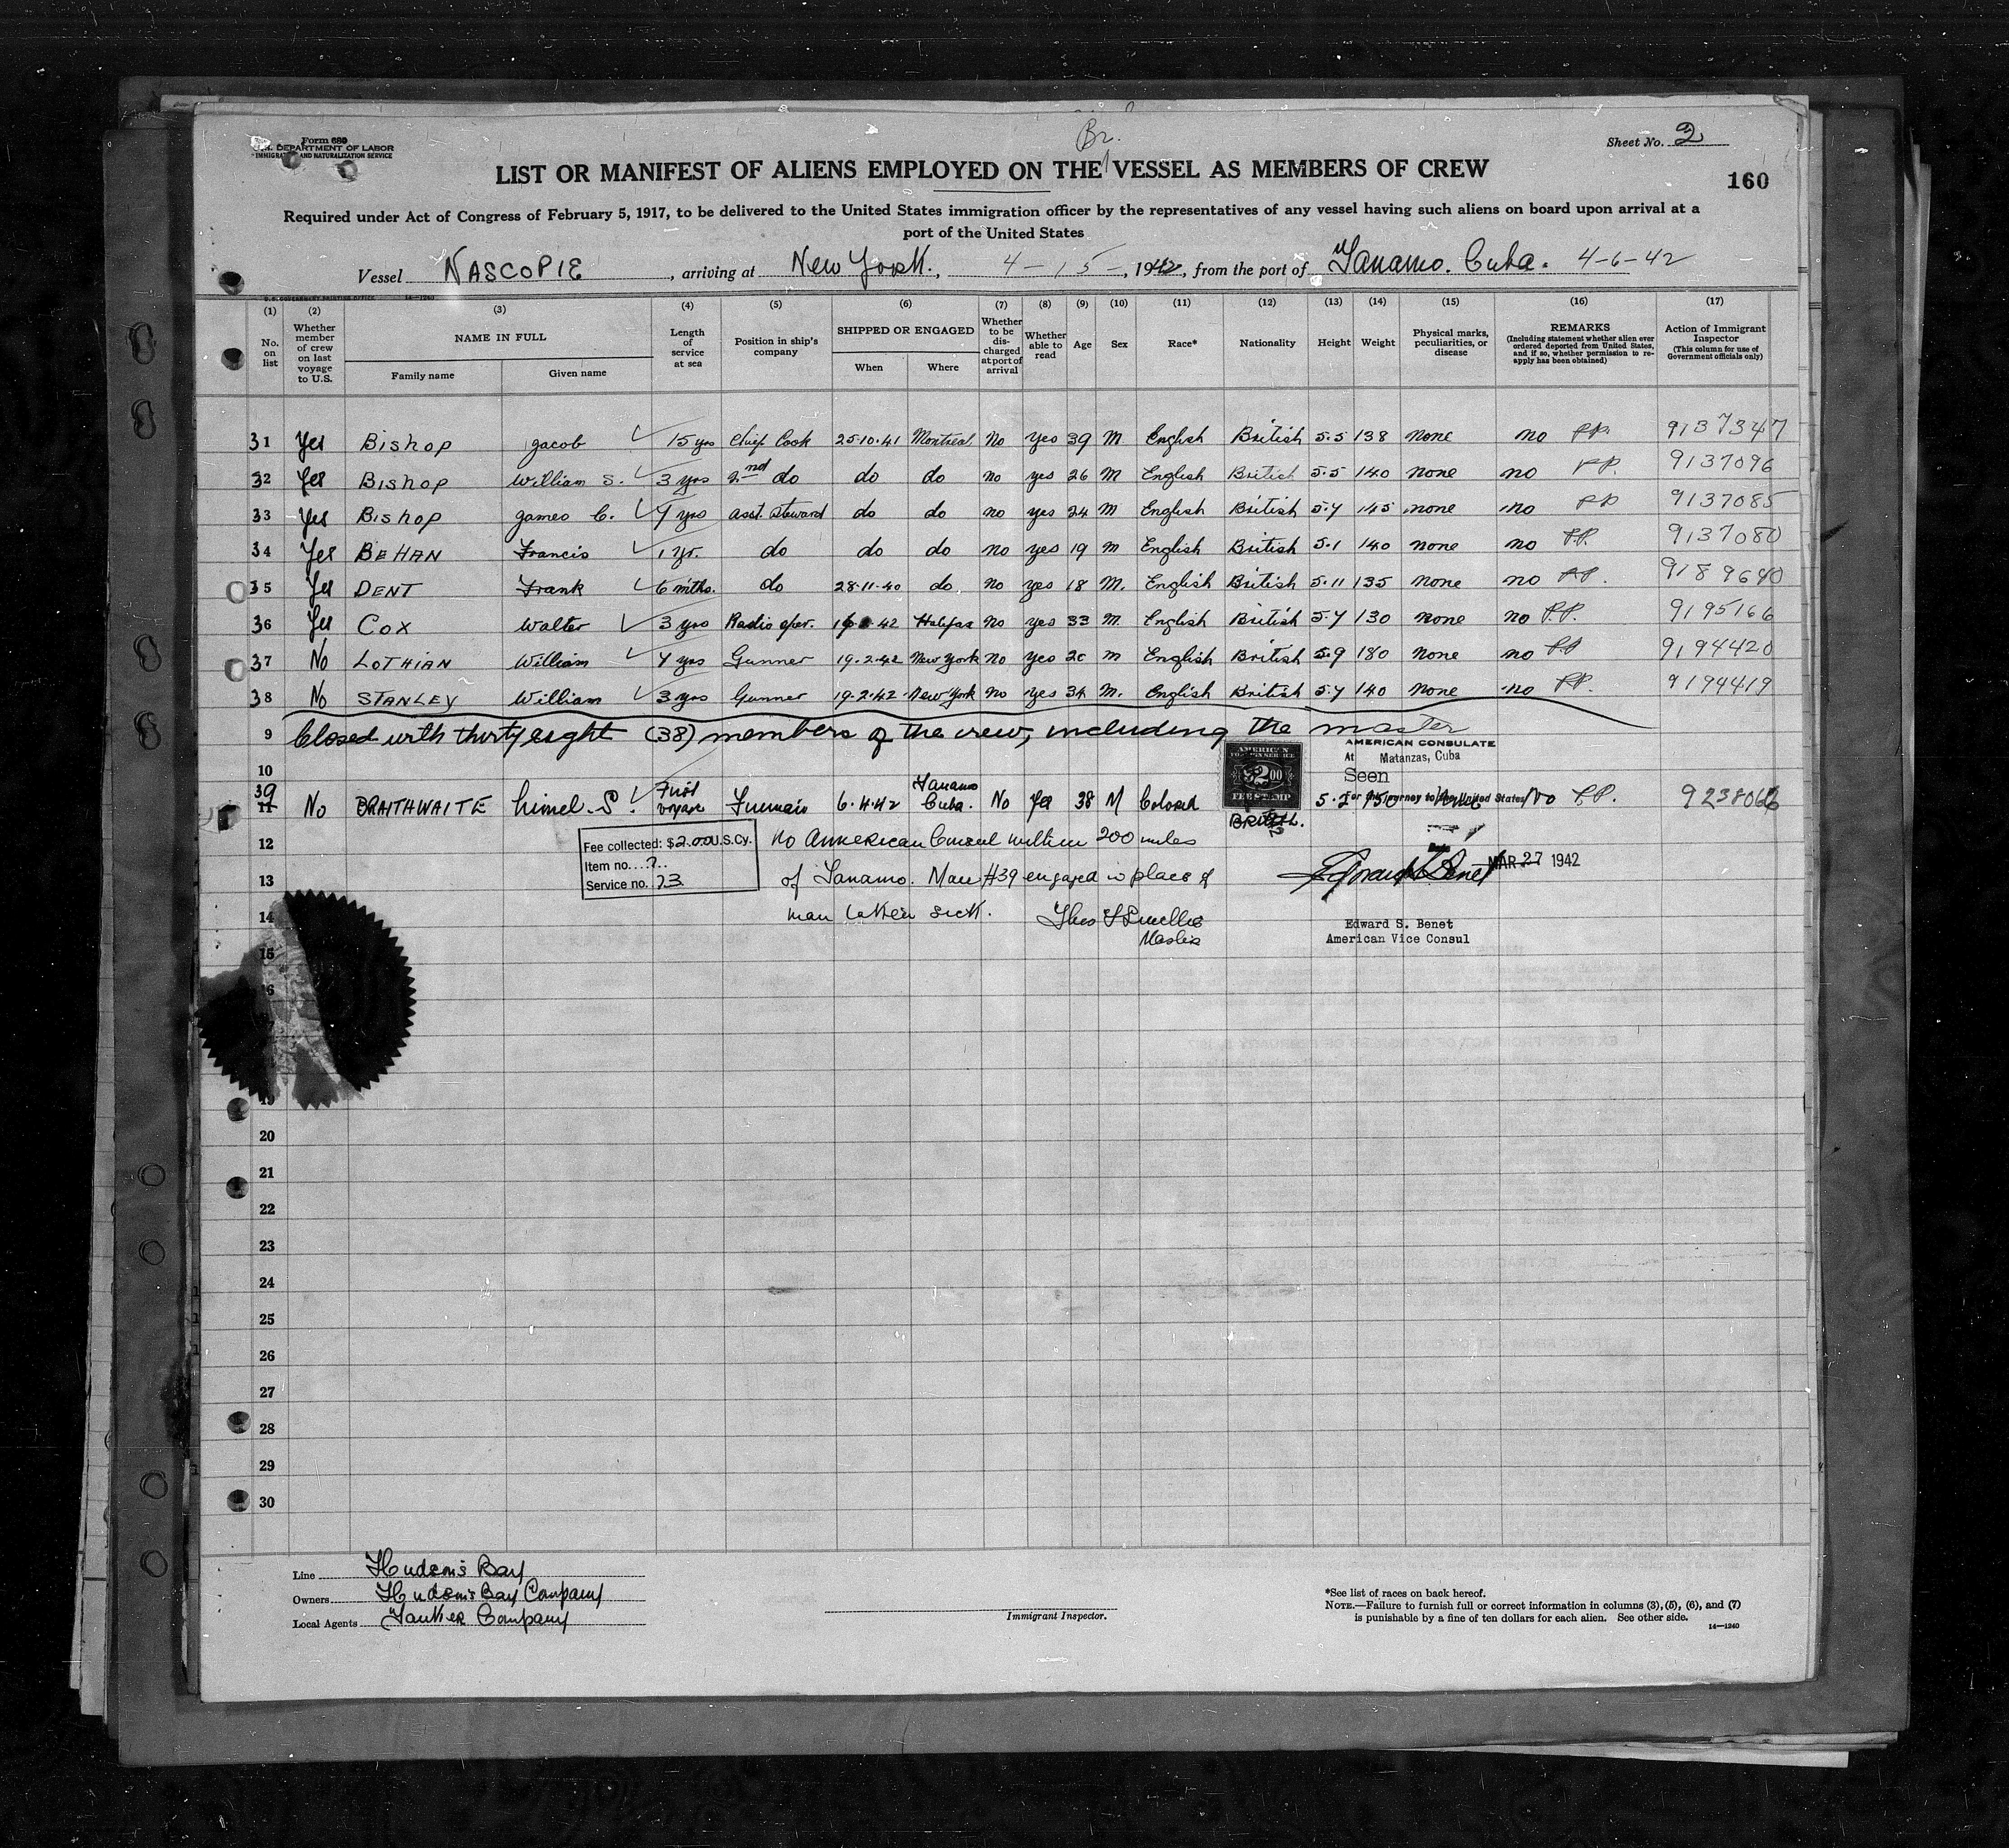 Form 680
U.S. DEPARTMENT OF LABOR
IMMIGRATION AND NATURALIZATION SERVICE
Br.
Sheet No. 2
LIST OR MANIFEST OF ALIENS EMPLOYED ON THE VESSEL AS MEMBERS OF CREW
160
Required under Act of Congress of February 5, 1917, to be delivered to the United States immigration officer by the representatives of any vessel having such aliens on board upon arrival at a
port of the United States
Vessel NASCOPIE, arriving at New York., 4-15-, 1942, from the port of Tanamo. Cuba. 4-6-42
U.S. GOVERNMENT PRINTING OFFICE 14-1240
(1) (2) (3) (4) (5) (6) (7) (8) (9) (10) (11) (12) (13) (14) (15) (16) (17)
No. on list
Whether member of crew on last voyage to U.S.
NAME IN FULL
Family name
Given name
Length of service at sea
Position in ship's company
SHIPPED OR ENGAGED
When
Where
Whether to be discharged at port of arrival
Whether able to read
Age
Sex
Race*
Nationality
Height
Weight
Physical marks, peculiarities, or disease
REMARKS
(Including statement whether alien ever ordered deported from United States, and if so, whether permission to reapply has been obtained)
Action of Immigrant Inspector
(This column for use of Government officials only)
31 Yes Bishop Jacob 15 yrs Chief Cook 25·10·41 Montreal No Yes 39 M. English British 5·5 138 none no PP. 9137347
32 Yes Bishop William S. 3 yrs 2nd do do do no yes 26 M English British 5·5 140 none no PP. 9137096
33 Yes Bishop James C. 4 yrs asst. Steward do do no yes 24 M English British 5·7 145 none no PP 9137085
34 Yes BEHAN Francis 1 yr. do do do no yes 19 m English British 5·1 140 none no P.P. 9137080
35 Yes DENT Frank 6 mths. do 28·11·40 do no yes 18 M. English British 5·11 135 none no PP. 9189640
36 Yes COX Walter 3 yrs Radio oper. 42 Halifax no yes 33 M English British 5·7 130 none no P.P. 9195166
37 No LOTHIAN William 4 yrs Gunner 19·2·42 New York no yes m English British 5·9 180 none no PP 9194420
38 No STANLEY William 3 yrs Gunner 19·2·42 New York no yes 34 M. English British 5·7 140 none no PP. 9194419
9 Closed with thirty eight (38) members of the crew, including the master
AMERICAN FOREIGN SERVICE $2.00 FEE STAMP
AMERICAN CONSULATE
At Matanzas, Cuba
Seen
For the journey to the United States
10
39 11 No BRAITHWAITE S. First voyage Fireman 6·4·42 Tanamo Cuba. No Yes 38 M Colored BRITISH. 5·2 150 No P.P. 9238066
12 No American Consul within 200 miles
13 of Tanamo. Man #39 engaged in place of
14 man taken sick.
Master
Fee collected: $2.00 U.S.Cy.
Item no. 7
Service no. 73
MAR 27 1942
Edward S. Benet
American Vice Consul
15
20
21
22
23
24
25
26
27
28
29
30
Line Hudson's Bay
Owners Hudson's Bay Company
Local Agents Company
Immigrant Inspector.
*See list of races on back hereof.
NOTE.—Failure to furnish full or correct information in columns (3), (5), (6), and (7)
is punishable by a fine of ten dollars for each alien. See other side.
14—1240